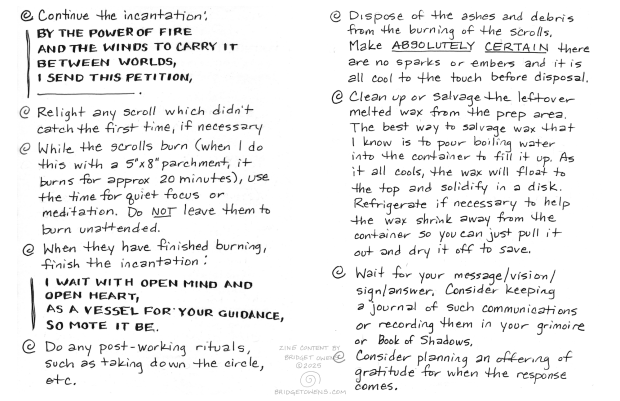 Continue the incantation:
BY THE POWER OF FIRE
AND THE WINDS TO CARRY IT
BETWEEN WORLDS,
I SEND THIS PETITION,
____________.
Relight any scroll which didn't
catch the first time, if necessary
While the scrolls burn (when I do
this with a 5"x8" parchment, it
burns for approx 20 minutes), use
the time for quiet focus or
meditation. Do NOT leave them to
burn unattended.
When they have finished burning,
finish the incantation:
I WAIT WITH OPEN MIND AND
OPEN HEART,
AS A VESSEL FOR YOUR GUIDANCE,
SO MOTE IT BE.
Do any post-working rituals,
such as taking down the circle,
etc.
Dispose of the ashes and debris
from the burning of the scrolls.
Make ABSOLUTELY CERTAIN there
are no sparks or embers and it is
all cool to the touch before disposal.
Clean up or salvage the leftover
melted wax from the prep area.
The best way to salvage wax that
I know is to pour boiling water
into the container to fill it up. As
it all cools, the wax will float to
the top and solidify in a disk.
Refrigerate if necessary to help
the wax shrink away from the
container so you can just pull it
out and dry it off to save.
Wait for your message/vision/
sign/answer. Consider keeping
a journal of such communications
or recording them in your grimoire
or Book of Shadows.
Consider planning an offering of
gratitude for when the response
comes.
ZINE CONTENT BY
BRIDGET OWENS
©2025
BRIDGETOWENS.COM